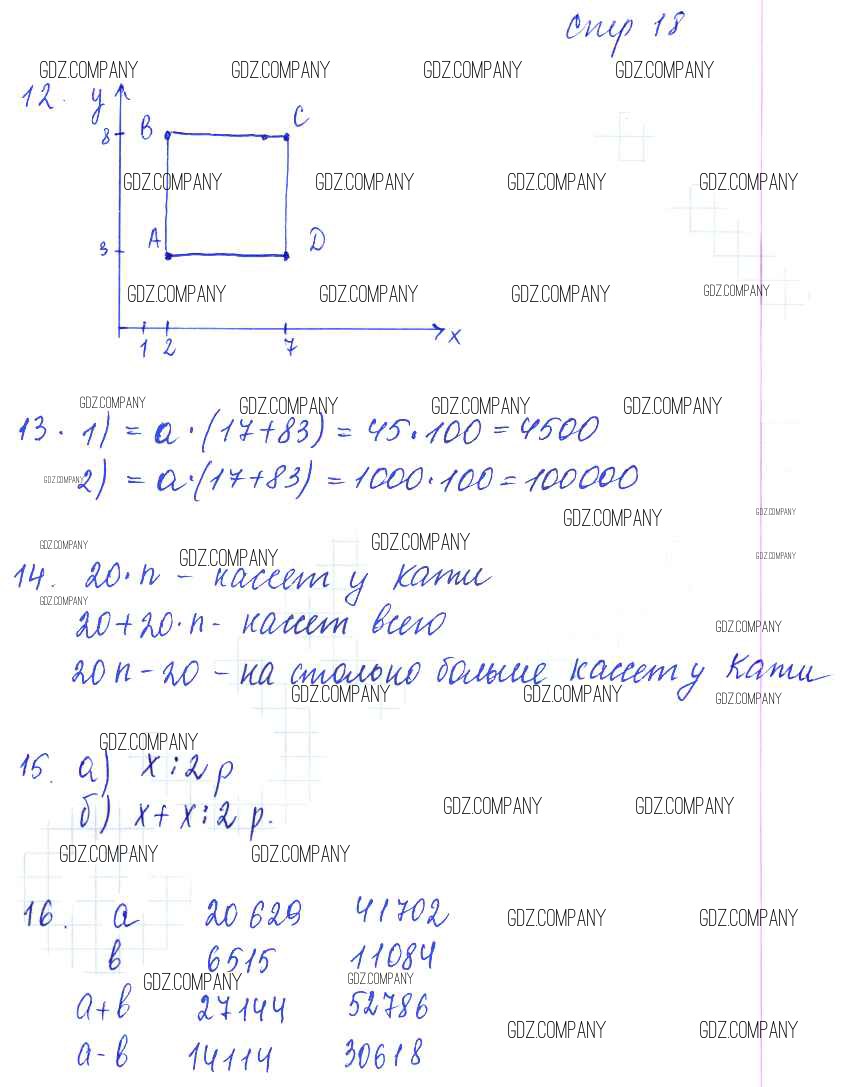 стр 18
GDZ.COMPANY GDZ.COMPANY GDZ.COMPANY GDZ.COMPANY
12. y
B C
8
GDZ.COMPANY GDZ.COMPANY GDZ.COMPANY GDZ.COMPANY
A D
3
GDZ.COMPANY GDZ.COMPANY GDZ.COMPANY GDZ.COMPANY
1 2 7 x
GDZ.COMPANY GDZ.COMPANY GDZ.COMPANY GDZ.COMPANY
13. 1) = a·(17+83) = 45·100 = 4500
GDZ.COMPANY
2) = a·(17+83) = 1000·100 = 100000
GDZ.COMPANY GDZ.COMPANY
GDZ.COMPANY GDZ.COMPANY GDZ.COMPANY GDZ.COMPANY
14. 20·n - кассет у Кати
GDZ.COMPANY
20+20·n - кассет всего
GDZ.COMPANY
20n-20 - на столько больше кассет у Кати
GDZ.COMPANY GDZ.COMPANY GDZ.COMPANY
GDZ.COMPANY
15. а) x:2 р
б) x+x:2 р.
GDZ.COMPANY GDZ.COMPANY
GDZ.COMPANY GDZ.COMPANY
16. a 20 629 41702
GDZ.COMPANY GDZ.COMPANY
в 6515 11084
GDZ.COMPANY GDZ.COMPANY
a+в 27144 52786
GDZ.COMPANY GDZ.COMPANY
a-в 14114 30618